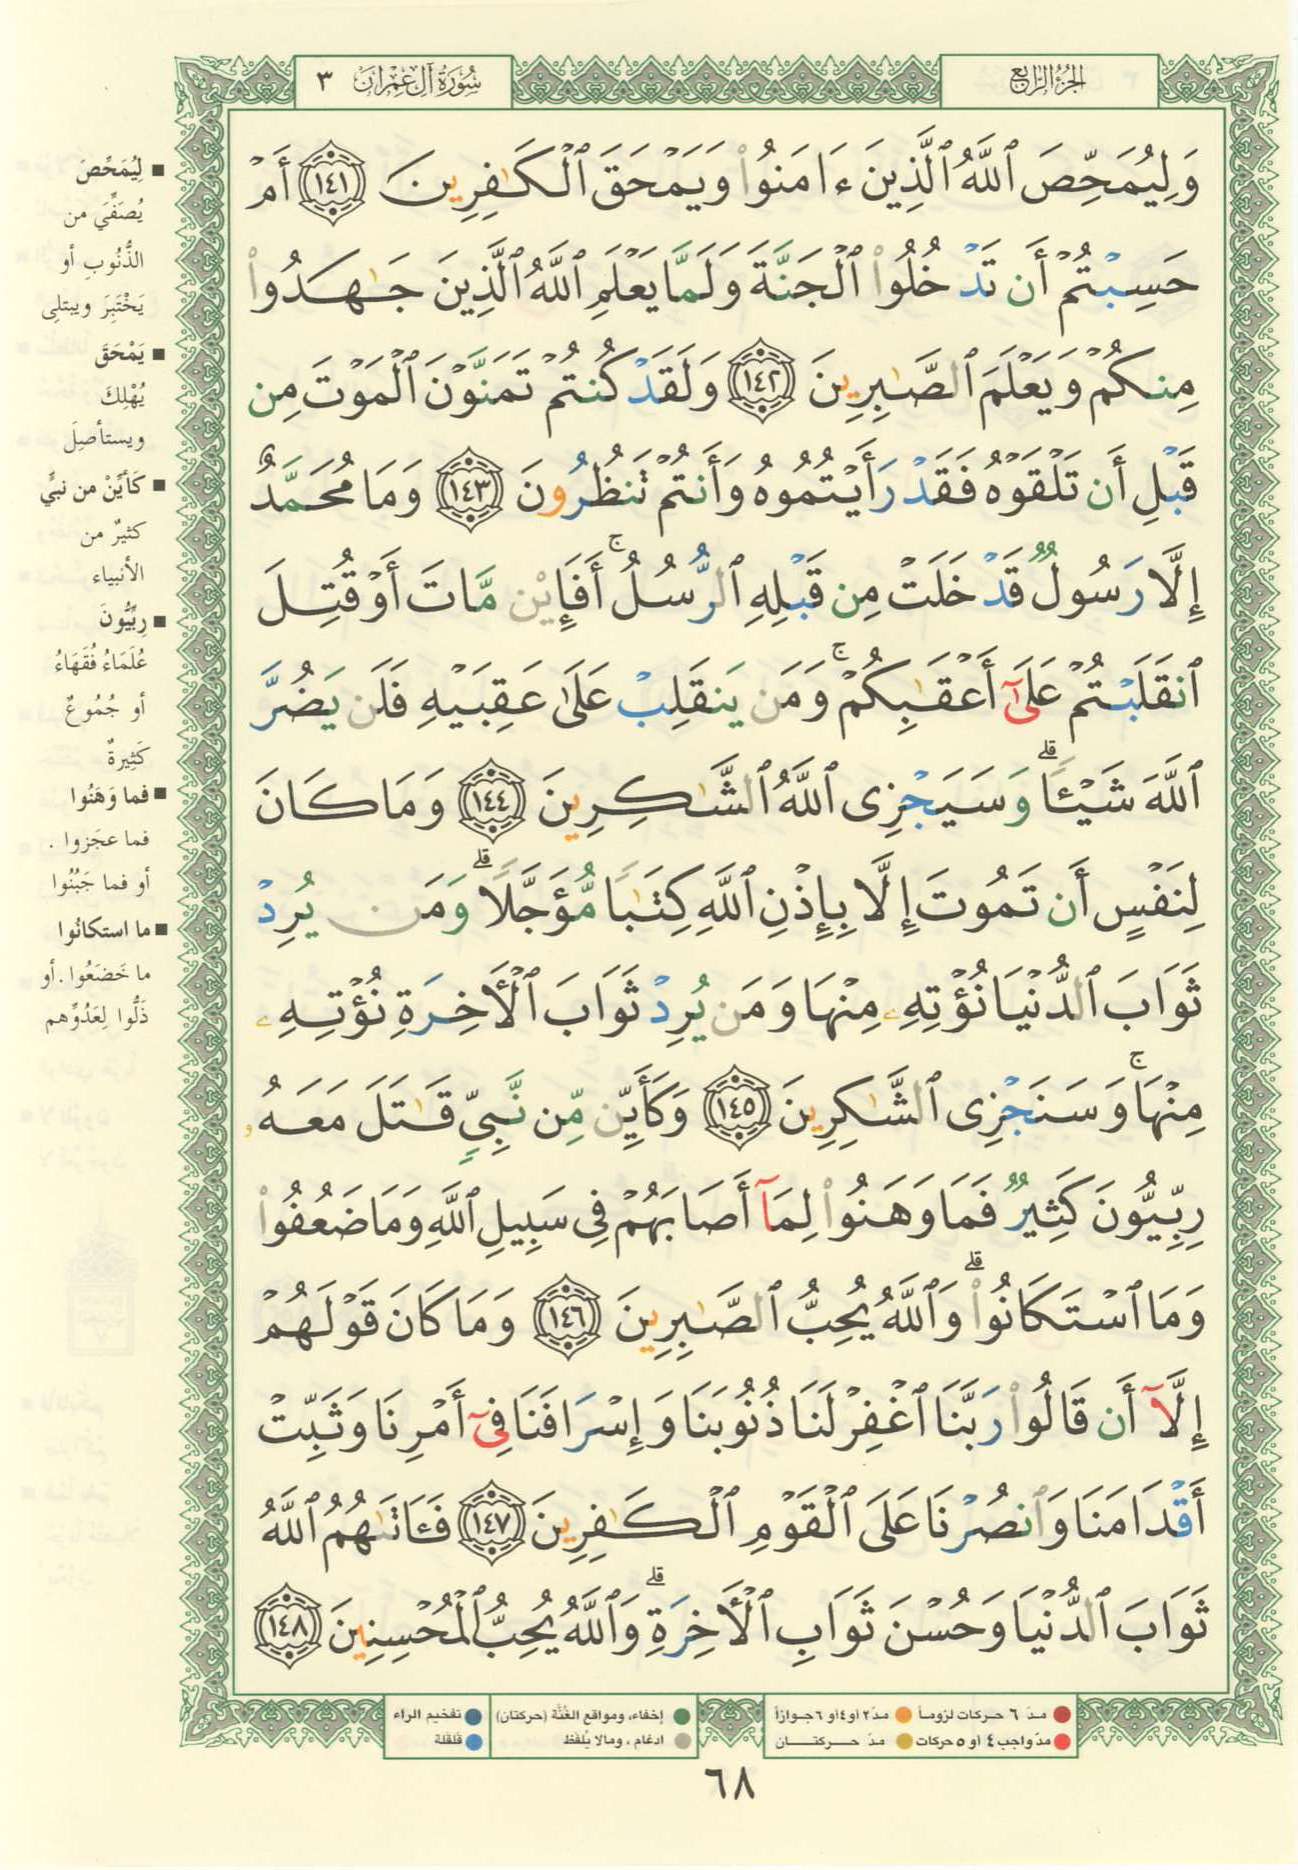 الجزء الرابع
سُورَةُ آلِ عِمْرَانَ ٣
وَلِيُمَحِّصَ ٱللَّهُ ٱلَّذِينَ ءَامَنُوا۟ وَيَمْحَقَ ٱلْكَـٰفِرِينَ ١٤١ أَمْ
حَسِبْتُمْ أَن تَدْخُلُوا۟ ٱلْجَنَّةَ وَلَمَّا يَعْلَمِ ٱللَّهُ ٱلَّذِينَ جَـٰهَدُوا۟
مِنكُمْ وَيَعْلَمَ ٱلصَّـٰبِرِينَ ١٤٢ وَلَقَدْ كُنتُمْ تَمَنَّوْنَ ٱلْمَوْتَ مِن
قَبْلِ أَن تَلْقَوْهُ فَقَدْ رَأَيْتُمُوهُ وَأَنتُمْ تَنظُرُونَ ١٤٣ وَمَا مُحَمَّدٌ
إِلَّا رَسُولٌ قَدْ خَلَتْ مِن قَبْلِهِ ٱلرُّسُلُ ۚ أَفَإِي۟ن مَّاتَ أَوْ قُتِلَ
ٱنقَلَبْتُمْ عَلَىٰٓ أَعْقَـٰبِكُمْ ۚ وَمَن يَنقَلِبْ عَلَىٰ عَقِبَيْهِ فَلَن يَضُرَّ
ٱللَّهَ شَيْـًٔا ۗ وَسَيَجْزِى ٱللَّهُ ٱلشَّـٰكِرِينَ ١٤٤ وَمَا كَانَ
لِنَفْسٍ أَن تَمُوتَ إِلَّا بِإِذْنِ ٱللَّهِ كِتَـٰبًا مُّؤَجَّلًا ۗ وَمَن يُرِدْ
ثَوَابَ ٱلدُّنْيَا نُؤْتِهِۦ مِنْهَا وَمَن يُرِدْ ثَوَابَ ٱلْـَٔاخِرَةِ نُؤْتِهِۦ
مِنْهَا ۚ وَسَنَجْزِى ٱلشَّـٰكِرِينَ ١٤٥ وَكَأَيِّن مِّن نَّبِىٍّ قَـٰتَلَ مَعَهُۥ
رِبِّيُّونَ كَثِيرٌ فَمَا وَهَنُوا۟ لِمَآ أَصَابَهُمْ فِى سَبِيلِ ٱللَّهِ وَمَا ضَعُفُوا۟
وَمَا ٱسْتَكَانُوا۟ ۗ وَٱللَّهُ يُحِبُّ ٱلصَّـٰبِرِينَ ١٤٦ وَمَا كَانَ قَوْلَهُمْ
إِلَّآ أَن قَالُوا۟ رَبَّنَا ٱغْفِرْ لَنَا ذُنُوبَنَا وَإِسْرَافَنَا فِىٓ أَمْرِنَا وَثَبِّتْ
أَقْدَامَنَا وَٱنصُرْنَا عَلَى ٱلْقَوْمِ ٱلْكَـٰفِرِينَ ١٤٧ فَـَٔاتَىٰهُمُ ٱللَّهُ
ثَوَابَ ٱلدُّنْيَا وَحُسْنَ ثَوَابِ ٱلْـَٔاخِرَةِ ۗ وَٱللَّهُ يُحِبُّ ٱلْمُحْسِنِينَ ١٤٨
■ لِيُمَحِّصَ
يُصَفِّيَ من
الذُّنُوبِ أو
يَخْتَبِرَ ويبتلِي
■ يَمْحَقَ
يُهْلِكَ
ويستأصِلَ
■ كَأيِّنْ من نبيٍّ
كثيرٌ من
الأنبياء
■ رِبِّيُّونَ
عُلَمَاءُ فُقَهَاءُ
أو جُمُوعٌ
كَثِيرَةٌ
■ فما وَهَنُوا
فما عجَزوا .
أو فما جَبُنُوا
■ ما استكانُوا
ما خَضَعُوا . أو
ذَلُّوا لِعَدُوِّهم
مدّ ٦ حركات لزوماً مدّ ٢ أو ٤ أو ٦ جوازاً
مدّ واجب ٤ أو ٥ حركات مدّ حركتان
إخفاء، ومواقع الغُنَّة (حركتان)
ادغام ، ومالا يُلفَظ
تفخيم الراء
قلقلة
٦٨